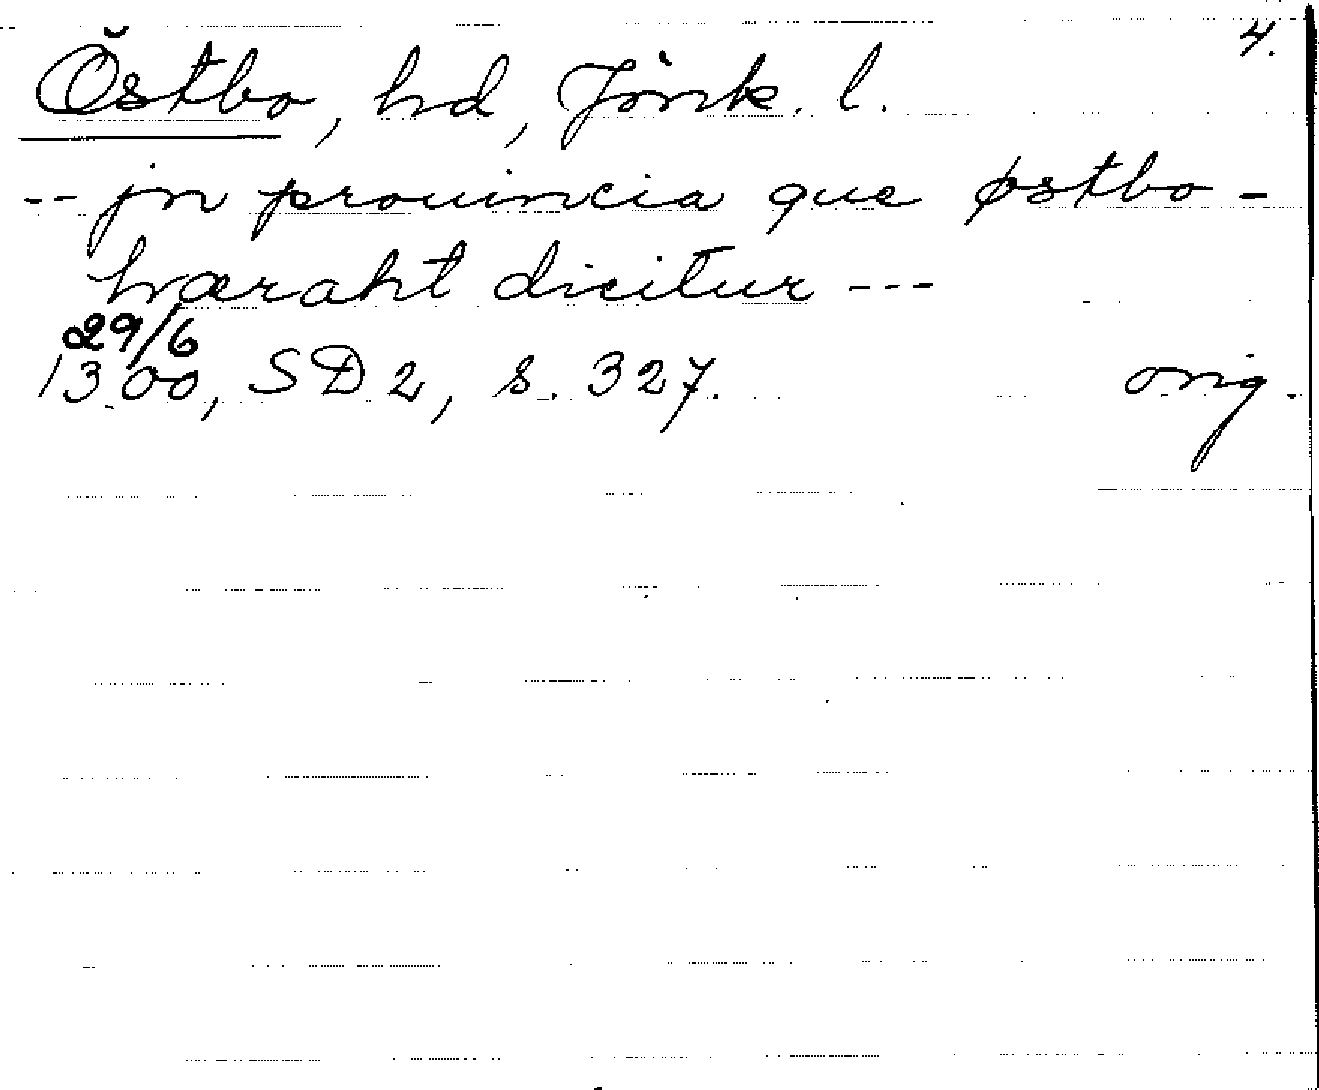 4.
Östbo, hd, Jönk. l.
-- jn prouincia que østbo -
hæraht dicitur ---
29/6
1300, SD 2, s. 327. orig.